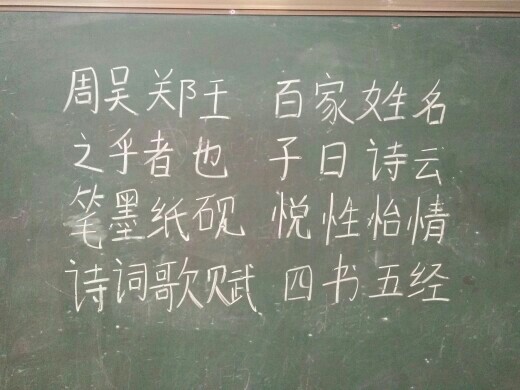 周吴郑王 百家姓名
之乎者也 子曰诗云
笔墨纸砚 悦性怡情
诗词歌赋 四书五经